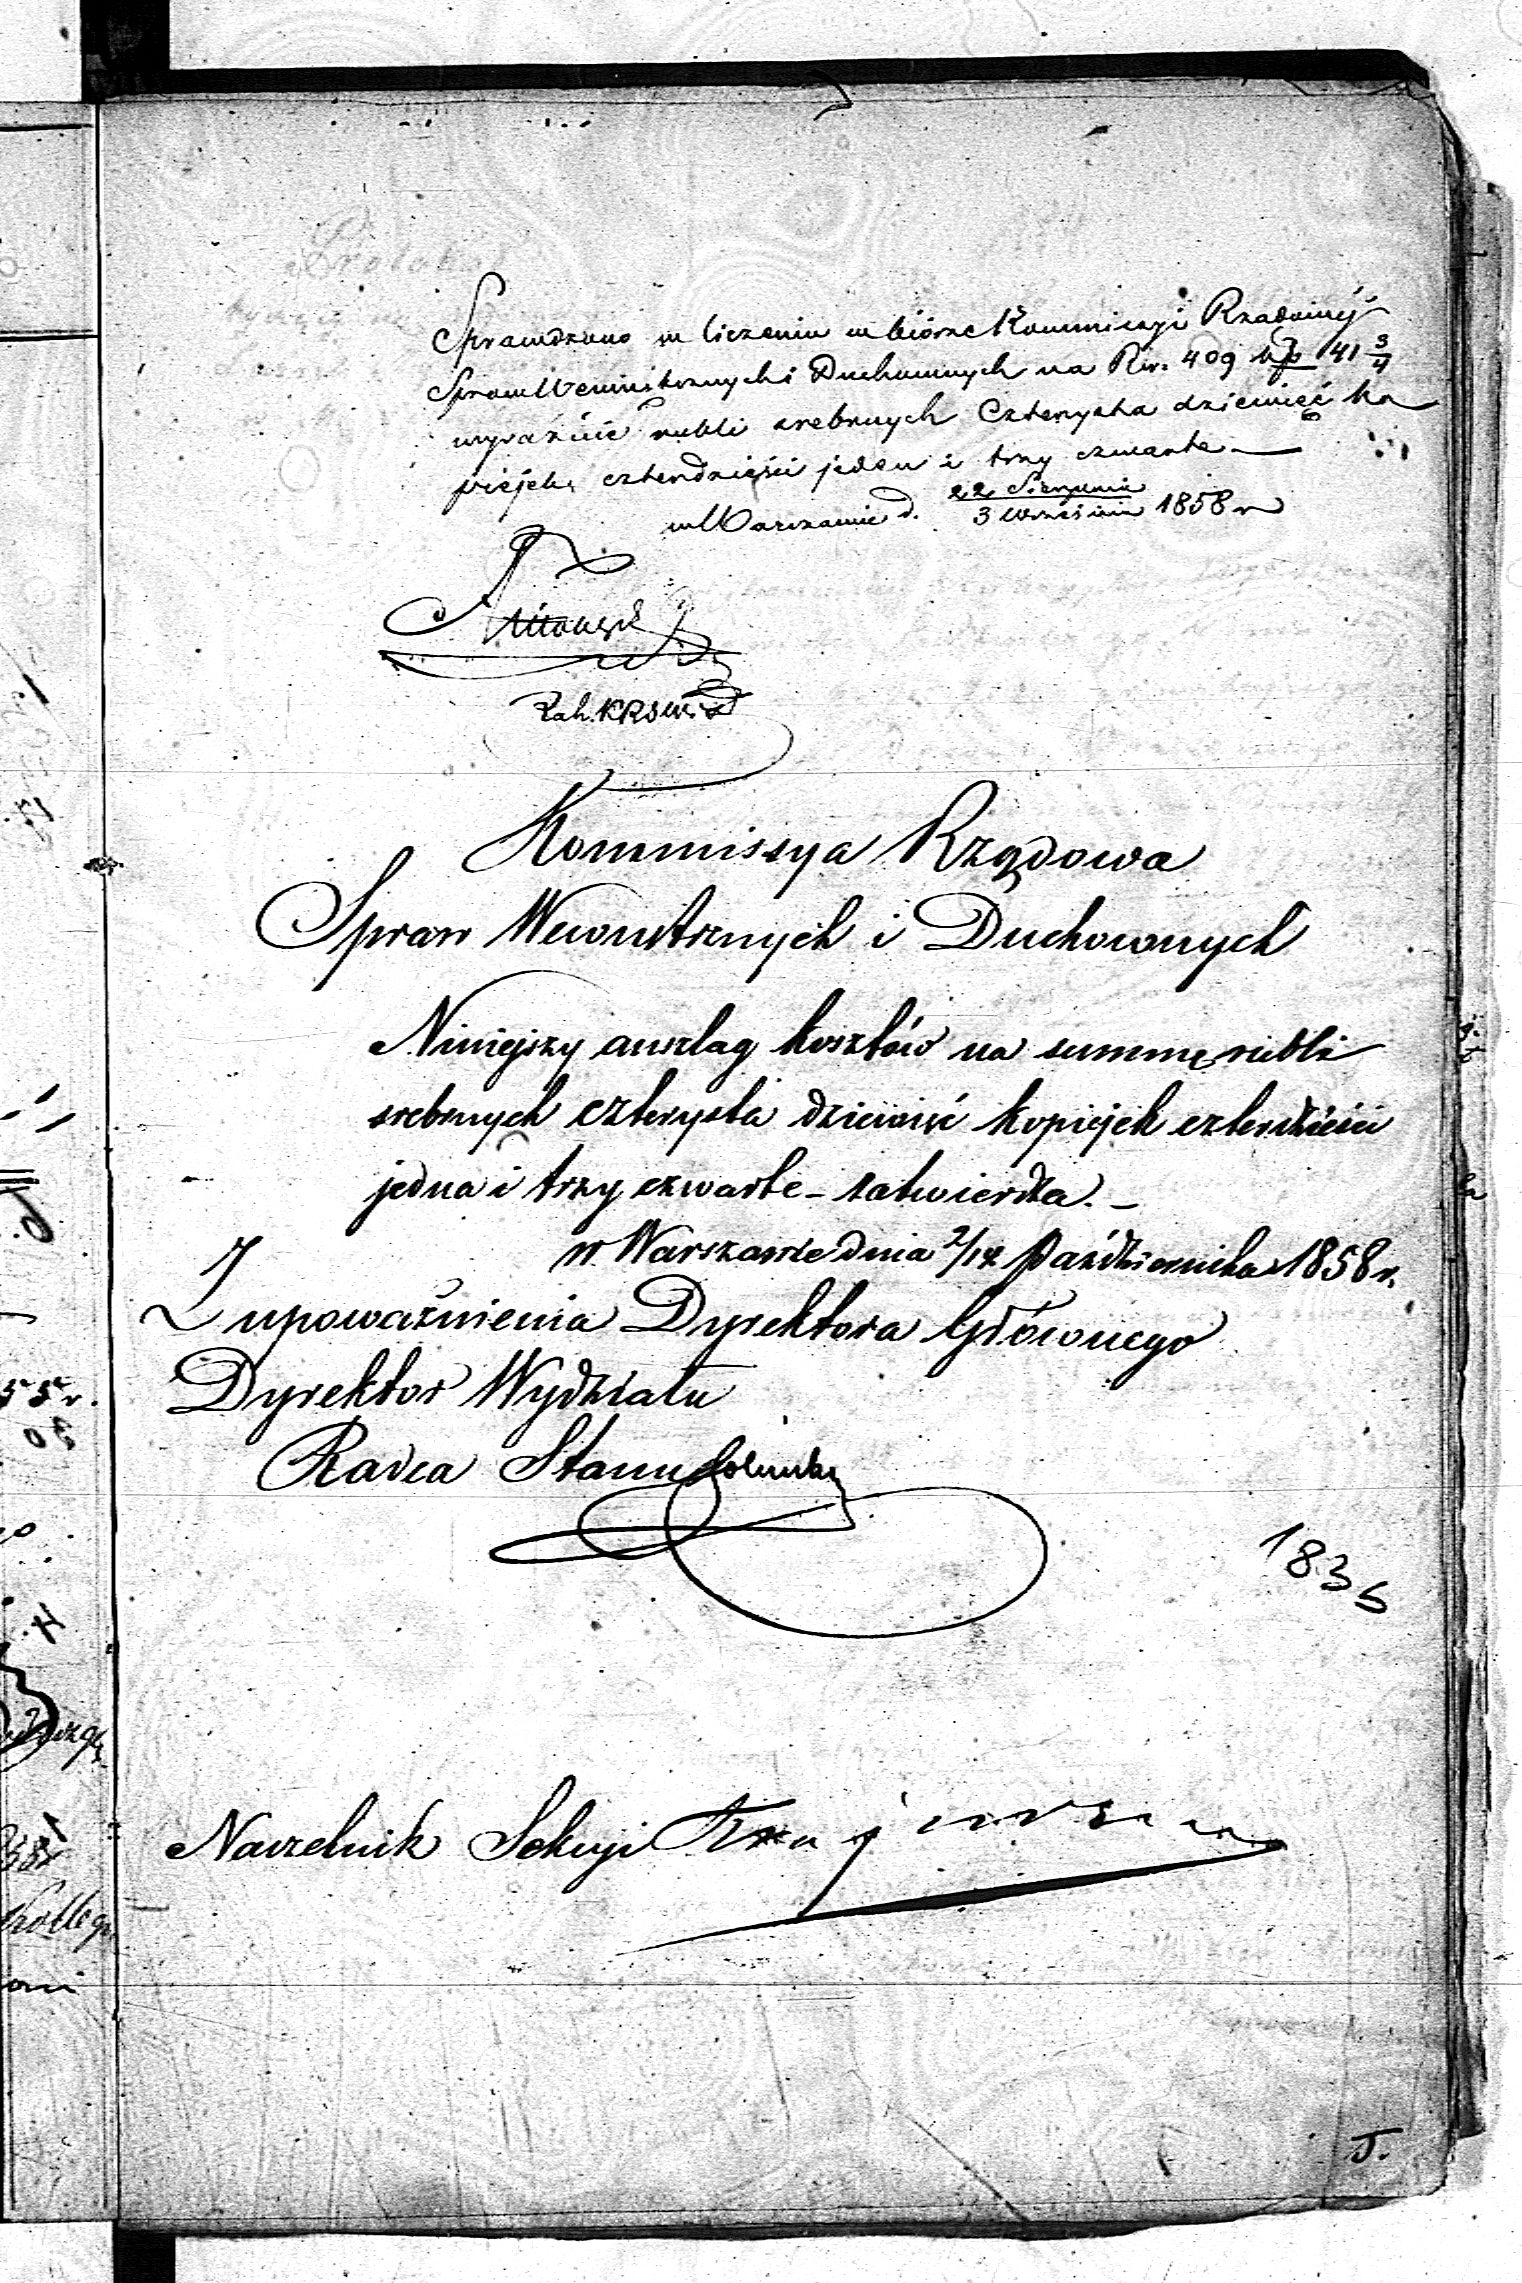 Sprawdzono w liczeniu w biórze Kommissyi Rządowéj
Spraw Wewnętrznych i Duchownych na Rsr. 409 kop 41 3/4
wyraźnie rubli srebrnych Czterysta dziewięć ko
piejek czterdzieści jeden i trzy czwarte —
w Warszawie d. 22 Sierpnia / 3 Września 1858 r
Rah. KRSW
Kommissya Rządowa
Spraw Wewnętrznych i Duchownych
Niniejszy anszlag kosztów na summę rubli
srebrnych czterysta dziewięć kopiejek czterdzieści
jedna i trzy czwarte – zatwierdza. –
w Warszawie dnia 2/14 Października 1858 r.
Z upoważnienia Dyrektora Głównego
Dyrektor Wydziału
Radca Stanu
1835
Naczelnik Sekcyi
J.